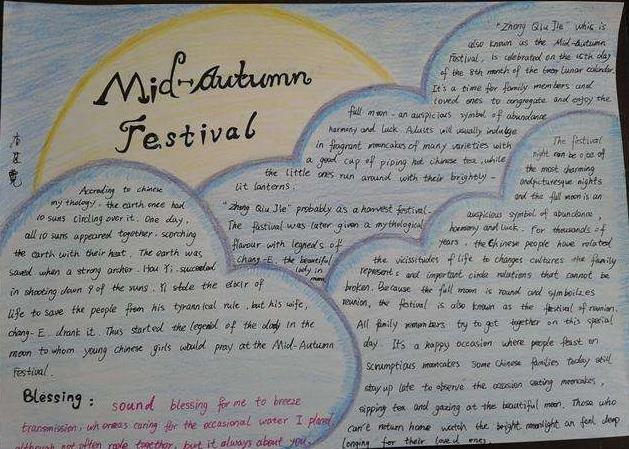 Mid-Autumn
Festival
"Zhong Qiu Jie" whic is
also known as the Mid-Autumn
Festival, is celebrated on the 15th day
of the 8th month of the lunar calendar.
It's a time for family members and
loved ones to congregate and enjoy the
full moon - an auspicious symbol of abundance
harmony and luck. Adults will usually indulge
in fragrant mooncakes of many varieties with
a good cup of piping hot chinese tea, while
the little ones run around with their brightly -
lit lanterns.
"Zhong Qiu Jie" probably as a harvest festival.
The fastival was later given a mythological
flavour with legneds of
Chang-E, the beautiful
lady in
moon
According to chinese
my thology, the earth once had
10 suns circling over it. One day,
all 10 suns appeared together, scorching
the earth with their heat. The earth was
saved when a strong archer. Hou Yi. succeeded
in shooting down 9 of the suns. Yi stole the elixir of
life to save the people from his tyrannical rule, but his wife,
chang-E.. drank it. Thus started the legend of the lady in the
moon to whom young Chinese girls would pray at the Mid-Autumn
Festival.
The festival
night can be one of
the most charming
and picturesque nights
and the full moon is an
auspicious symbol of abundance,
harmony and luck. For thousands of
years, the Chinese people have related
the vicissitudes of life to changes cultures the family
represents and important circle relations that cannot be
broken. Because the full moon is round and symbolizes
reunion, the festival is also known as the festival of reunion.
All family members try to get together on this special
day. It's a happy occasion where people feast on
scrumptious mooncakes some Chinese families today still
stay up late to observe the occasion eating mooncakes,
sipping tea and gazing at the beautiful moon. Those who
can't return home watch the bright moonlight an feel deep
longing for their loved ones.
Blessing:
sound blessing for me to breeze
transmission, whereas caring for the occasional water I plend
although not often together, but it always about you.